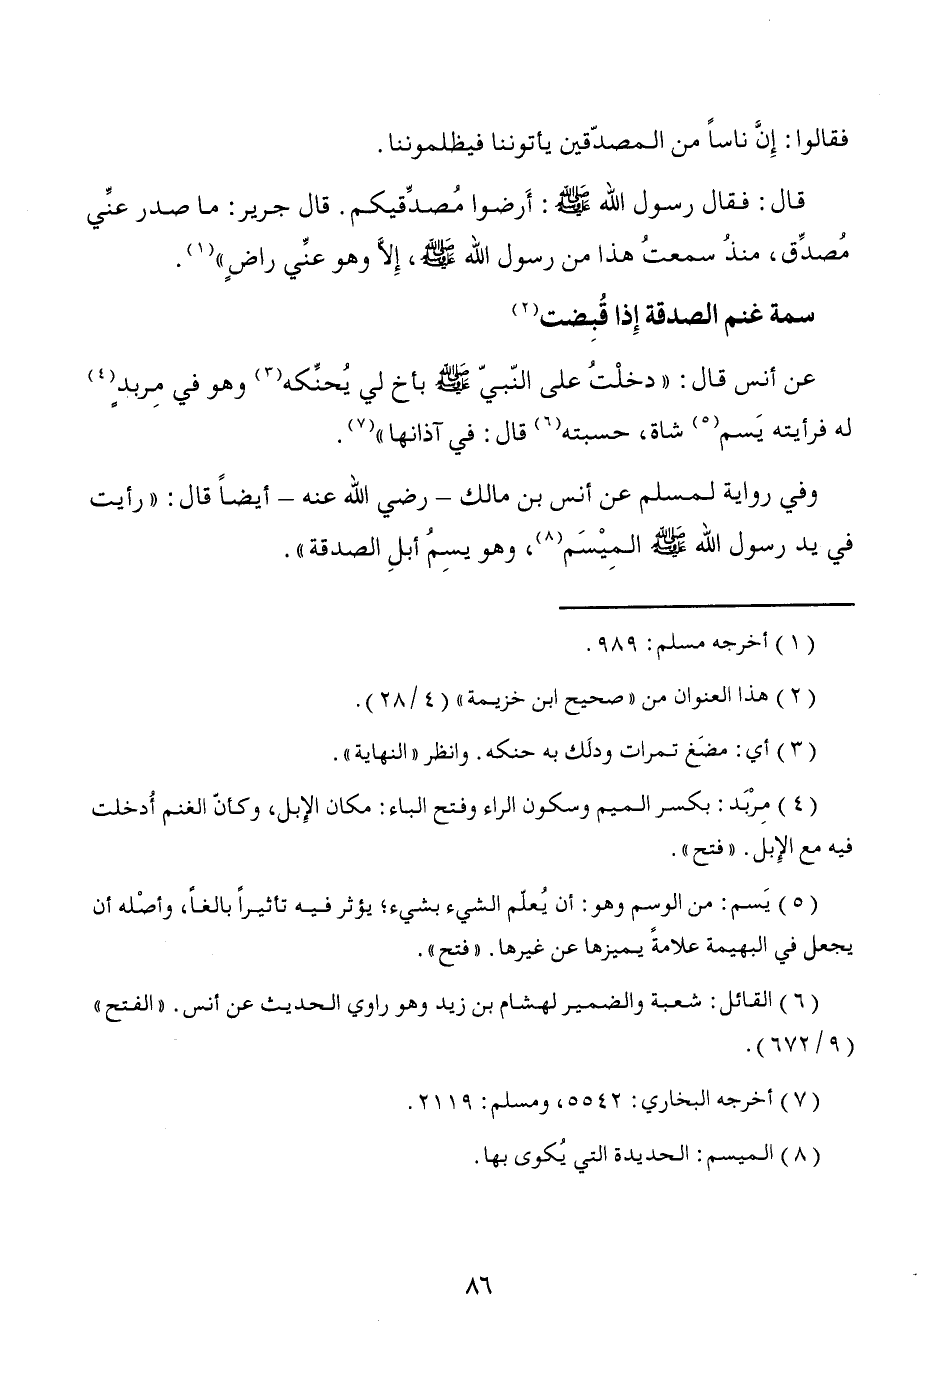 فقالوا: إِنَّ ناساً من المصدّقين يأتوننا فيظلموننا.
قال: فقال رسول الله ﷺ: أَرضوا مُصدِّقيكم. قال جرير: ما صدر عنِّي
مُصدِّق، منذُ سمعتُ هذا من رسول الله ﷺ، إِلاَّ وهو عنِّي راضٍ»(١).
سمة غنم الصدقة إِذا قُبِضت(٢)
عن أنس قال: «دخلْتُ على النّبيّ ﷺ بأخ لي يُحنِّكه(٣) وهو في مِربدٍ(٤)
له فرأيته يَسم(٥) شاة، حسبته(٦) قال: في آذانها»(٧).
وفي رواية لمسلم عن أنس بن مالك - رضي الله عنه - أيضاً قال: «رأيت
في يد رسول الله ﷺ المِيْسَم(٨)، وهو يسِمُ أبلِ الصدقة».
(١) أخرجه مسلم: ٩٨٩.
(٢) هذا العنوان من «صحيح ابن خزيمة» (٤/٢٨).
(٣) أي: مضَغ تمرات ودلَك به حنكه. وانظر «النهاية».
(٤) مِرْبَد: بكسر الميم وسكون الراء وفتح الباء: مكان الإِبل، وكأنّ الغنم أُدخلت
فيه مع الإِبل. «فتح».
(٥) يَسم: من الوسم وهو: أن يُعلّم الشيء بشيء؛ يؤثر فيه تأثيراً بالغاً، وأصْله أن
يجعل في البهيمة علامةً يميزها عن غيرها. «فتح».
(٦) القائل: شعبة والضمير لهشام بن زيد وهو راوي الحديث عن أنس. «الفتح»
(٩/٦٧٢).
(٧) أخرجه البخاري: ٥٥٤٢، ومسلم: ٢١١٩.
(٨) الميسم: الحديدة التي يُكوى بها.
٨٦